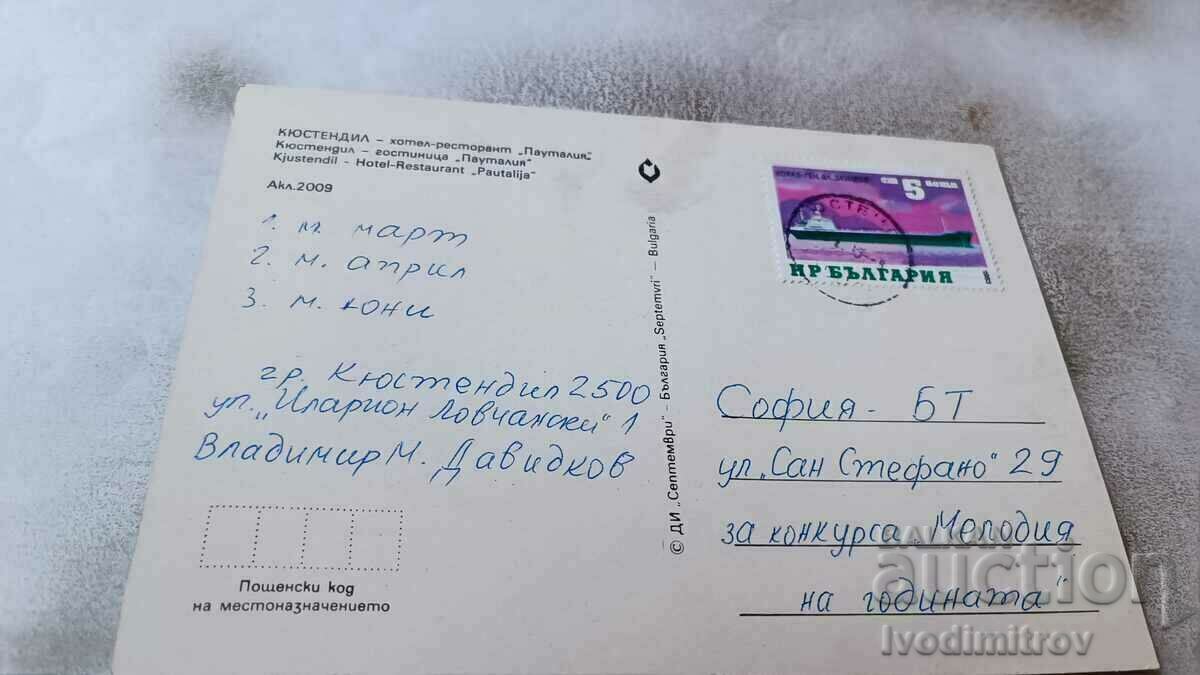 КЮСТЕНДИЛ – хотел-ресторант „Пауталия“
Кюстендил – гостиница „Пауталия“
Kjustendil - Hotel-Restaurant „Pautalija“
Акл.2009
1. м. март
2. м. април
3. м. юни
гр. Кюстендил 2500
ул. „Иларион Ловчански" 1
Владимир М. Давидков
Пощенски код
на местоназначението
© ДИ „Септември“ – България „Septemvri“ – Bulgaria
ст 5 поща
НР БЪЛГАРИЯ
София - БТ
ул „Сан Стефано" 29
за конкурса „Мелодия
на годината"
BALKAN
auction
Ivodimitrov